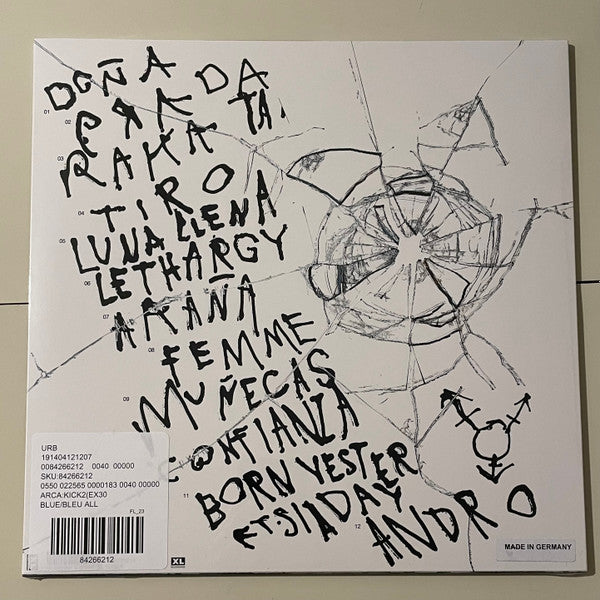 01 DOÑA
02 PRADA
03 RAKATA
04 TIRO
05 LUNA LLENA
06 LETHARGY
07 ARAÑA
08 FEMME
09 MUÑECAS
CONFIANZA
11 BORN YESTER
DAY
12 ANDRO
URB
191404121207
0084266212 0040 00000
SKU:84266212
0550 022565 0000183 0040 00000
ARCA:KICK2(EX30
BLUE/BLEU ALL
FL_23
84266212
XL
MADE IN GERMANY